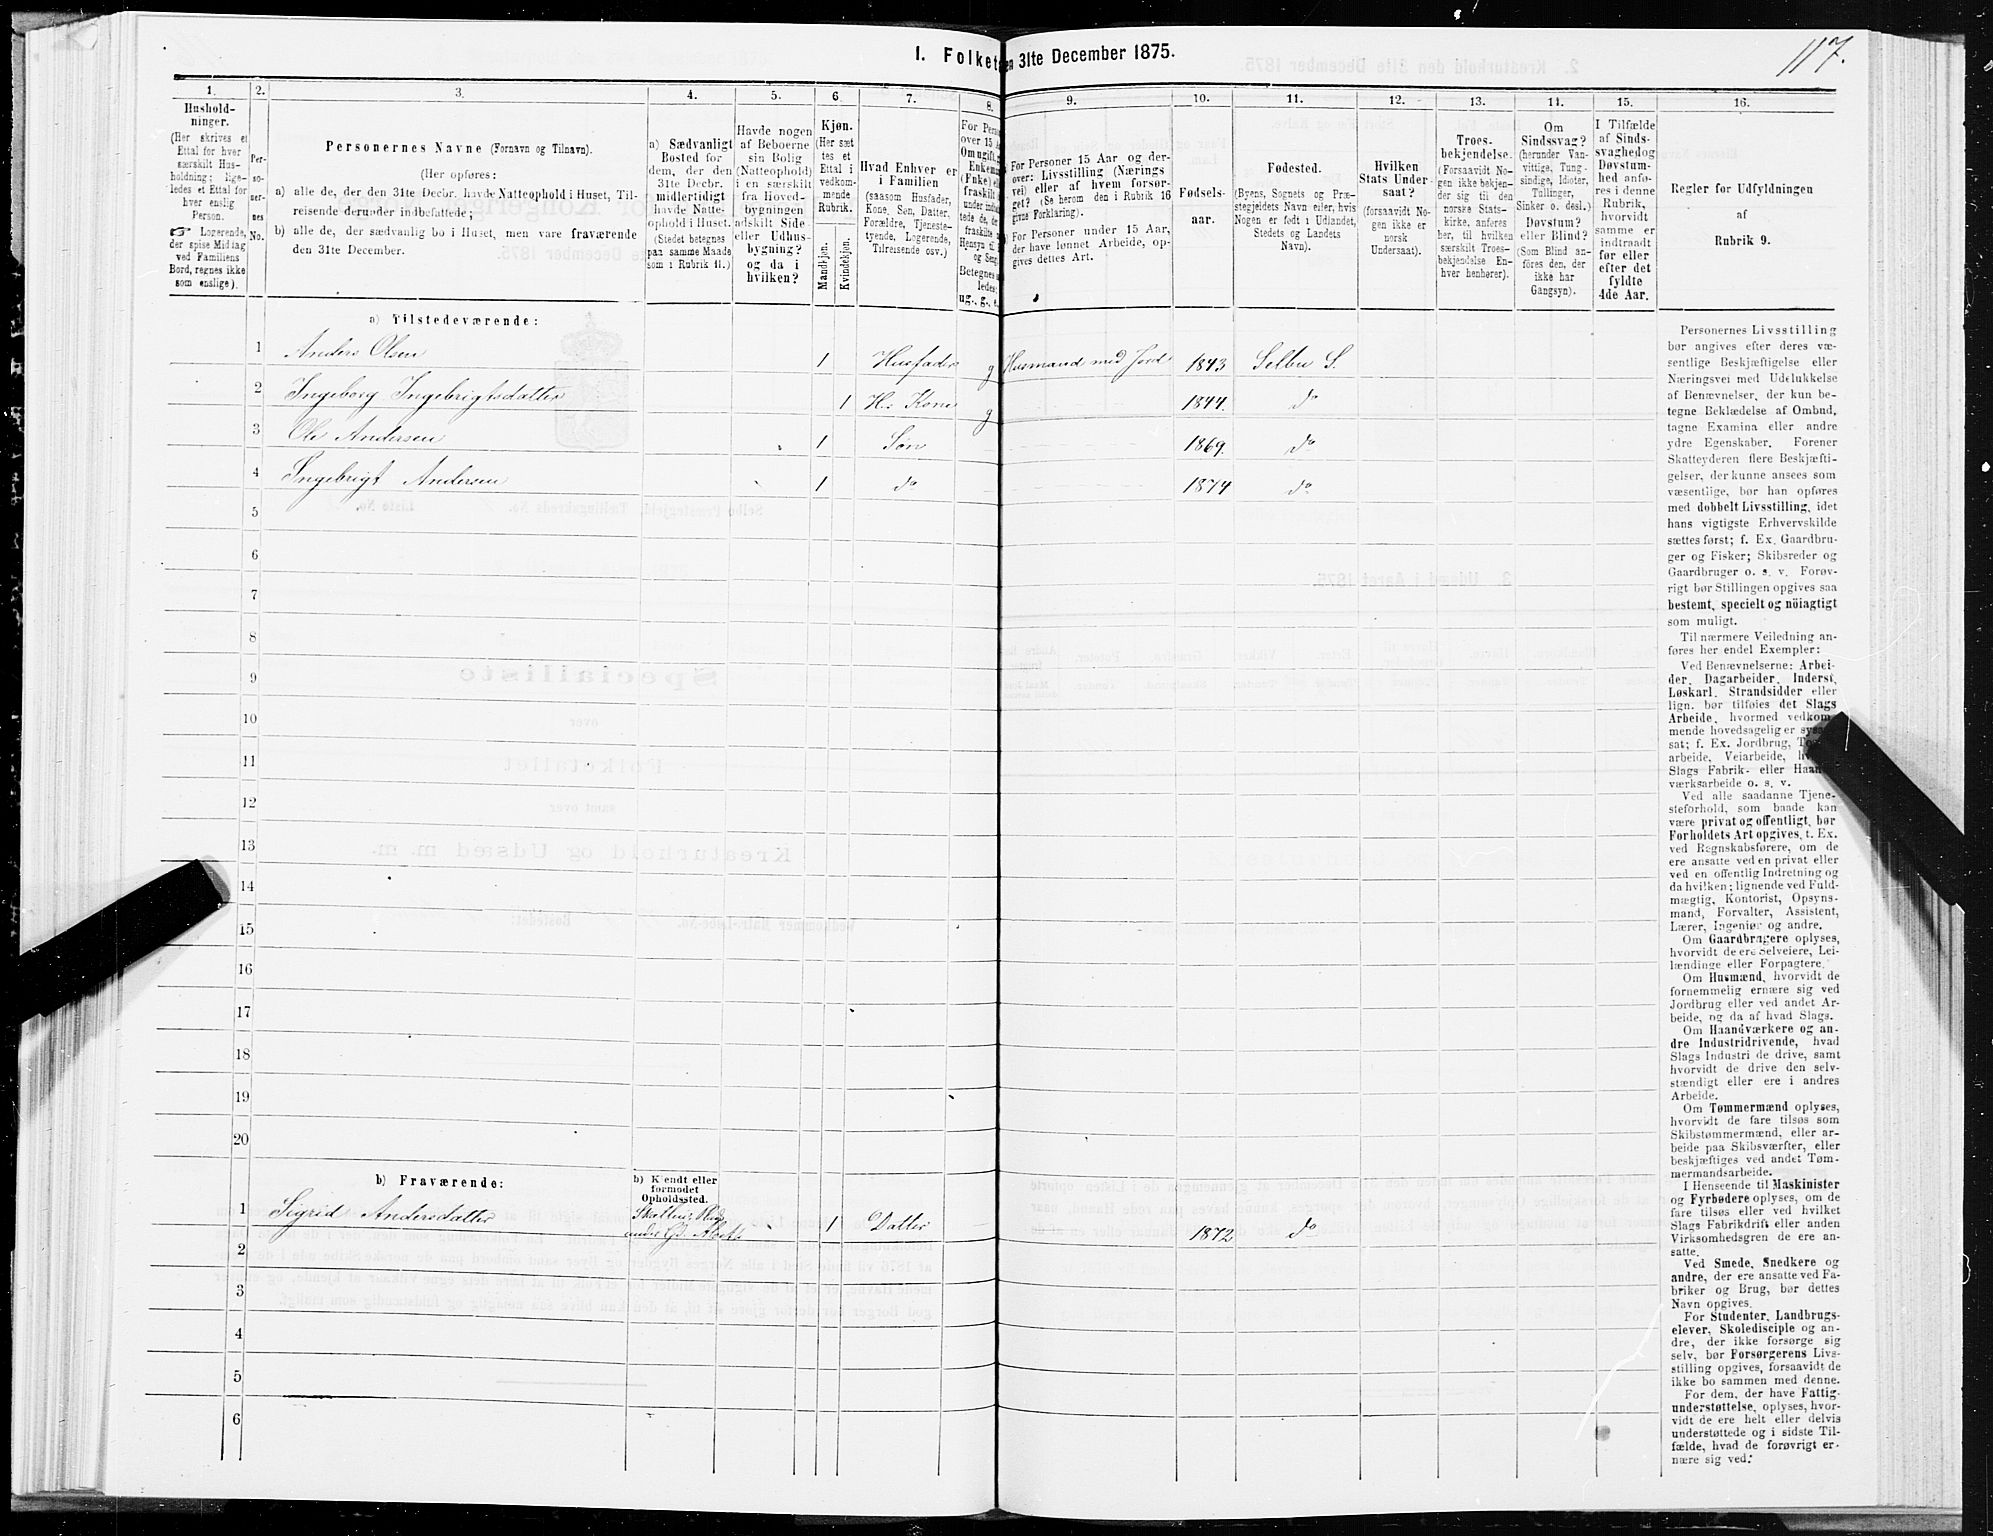 I. Folket en 31te December 1875.
117.
1.
2.
3.
4.
5.
6.
7.
8.
9.
10.
11.
12.
13.
14.
15.
16.
Hushold-
ninger.
(Her skrives et
Ettal for hver
særskilt Hus-
holdning; lige-
ledes et Ettal for
hver enslig
Person.
☛ Logerende,
der spise Middag
ved Familiens
Bord, regnes ikke
som enslige).
Per-
so-
ner-
nes
No.
Personernes Navne (Fornavn og Tilnavn).
(Her opføres:
a) alle de, der den 31te Decbr. havde Natteophold i Huset, Til-
reisende derunder indbefattede;
b) alle de, der sædvanlig bo i Huset, men vare fraværende
den 31te December.
a) Sædvanligt
Bosted for
dem, der den
31te Decbr.
midlertidigt
havde Natte-
ophold i Huset.
(Stedet betegnes
paa samme Maade
som i Rubrik 11.)
Havde nogen
af Beboerne
sin Bolig
(Natteophold)
i en særskilt
fra Hoved-
bygningen
adskilt Side-
eller Udhus-
bygning?
og da i
hvilken?
Kjøn.
(Her sæt-
tes et
Ettal i
vedkom-
mende
Rubrik.
Mandkjøn.
Kvindekjøn.
Hvad Enhver er
i Familien
(saasom Husfader,
Kone, Søn, Datter,
Forældre, Tjeneste-
tyende, Logerende,
Tilreisende osv.)
For Perso
over 15 A
Om ugift,
Enkema
(Fnke) el
fraskilt
under indbe
tede de, d
fraskilte
Hensyn til
og Seng
Betegnes s
ledes:
ug., g., e.
For Personer 15 Aar og der-
over: Livsstilling (Nærings
vei) eller af hvem forsør-
get? (Se herom den i Rubrik 16
givne Forklaring).
For Personer under 15 Aar,
der have lønnet Arbeide, op-
gives dettes Art.
Fødsels-
aar.
Fødested.
(Byens, Sognets og Præ-
stegjeldets Navn eller, hvis
Nogen er født i Udlandet,
Stedets og Landets
Navn).
Hvilken
Stats Under-
saat?
(forsaavidt No-
gen ikke er
norsk
Undersaat).
Troes-
bekjendelse.
(Forsaavidt No-
gen ikke bekjen-
der sig til den
norske Stats-
kirke, anføres
her, til hvilken
særskilt Troes-
bekjendelse En-
hver henhører).
Om
Sindssvag?
(herunder Van-
vittige, Tung-
sindige, Idioter,
Tullinger,
Sinker o. desl.)
Døvstum?
eller Blind?
(Som Blind an-
føres den, der
ikke har
Gangsyn).
I Tilfælde
af Sinds-
svaghed og
Døvstum-
hed anfø-
res i denne
Rubrik,
hvorvidt
samme er
indtraadt
før eller
efter det
fyldte
4de Aar.
Regler for Udfyldningen
af
Rubrik 9.
a) Tilstedeværende:
1 Anders Olsen 1 Husfader g Husmand med Jord 1843 Selbu S.
2 Ingeborg Ingebrigtsdatter 1 H: Kone g 1844. do
3 Ole Andersen 1 Søn 1869. do
4 Ingebrigt Andersen 1 do 1874 do
5
6
7
8
9
10
11
12
13
14
15
16
17
18
19
20
b) Fraværende:
b) Kjendt eller
formodet
Opholdssted.
1 Sigrid Andersdatter 1 Datter 1872 do
2
3
4
5
6
Personernes Livsstilling
bør angives efter deres væ-
sentlige Beskjæftigelse eller
Næringsvei med Udelukkelse
af Benævnelser, der kun be-
tegne Beklædelse af Ombud,
tagne Examina eller andre
ydre Egenskaber. Forener
Skatteyderen flere Beskjæfti-
gelser, der kunne ansees som
væsentlige, bør han opføres
med dobbelt Livsstilling, idet
hans vigtigste Erhvervskilde
sættes først; f. Ex. Gaardbru-
ger og Fisker; Skibsreder og
Gaardbruger o. s. v. Forøv-
rigt bør Stillingen opgives saa
bestemt, specielt og nöiagtigt
som muligt.
Til nærmere Veiledning an-
føres her endel Exempler:
Ved Benævnelserne: Arbei-
der, Dagarbeider, Inderst,
Løskarl, Strandsidder eller
lign. bør tilføies det Slags
Arbeide, hvormed vedkom-
mende hovedsagelig er syssel
sat; f. Ex. Jordbrug,
arbeide, Veiarbeide,
Slags Fabrik- eller Haand
værksarbeide o. s. v.
Ved alle saadanne Tjene-
steforhold, som baade kan
være privat og offentligt, bør
Forholdets Art opgives, t. Ex.
ved Regnskabsførere, om de
ere ansatte ved en privat eller
ved en offentlig Indretning og
da hvilken; lignende ved Fuld-
mægtig, Kontorist, Opsyns-
mand, Forvalter, Assistent,
Lærer, Ingeniør og andre.
Om Gaardbrugere oplyses,
hvorvidt de ere Selveiere, Lei-
lændinge eller Forpagtere.
Om Husmænd, hvorvidt de
fornemmelig ernære sig ved
Jordbrug eller ved andet Ar-
beide, og da af hvad Slags.
Om Haandværkere og an-
dre Industridrivende, hvad
Slags Industri de drive, samt
hvorvidt de drive den selv-
stændigt eller ere i andres
Arbeide.
Om Tømmermænd oplyses,
hvorvidt de fare tilsøs som
Skibstømmermænd, eller ar-
beide paa Skibsværfter, eller
beskjæftiges ved andet Tøm-
mermandsarbeide.
I Henseende til Maskinister
og Fyrbødere oplyses, om de
fare tilsøs eller ved hvilket
Slags Fabrikdrift eller anden
Virksomhedsgren de ere an-
satte.
Ved Smede, Snedkere og
andre, der ere ansatte ved Fa-
briker og Brug, bør dettes
Navn opgives.
For Studenter, Landbrugs-
elever, Skoledisciple og an-
dre, der ikke forsørge sig
selv, bør Forsørgerens Livs-
stilling opgives, forsaavidt de
ikke bo sammen med denne.
For dem, der have Fattig-
understøttelse, oplyses, hvor-
vidt de ere helt eller delvis
understøttede og i sidste Til-
fælde, hvad de forøvrigt er-
nære sig ved.